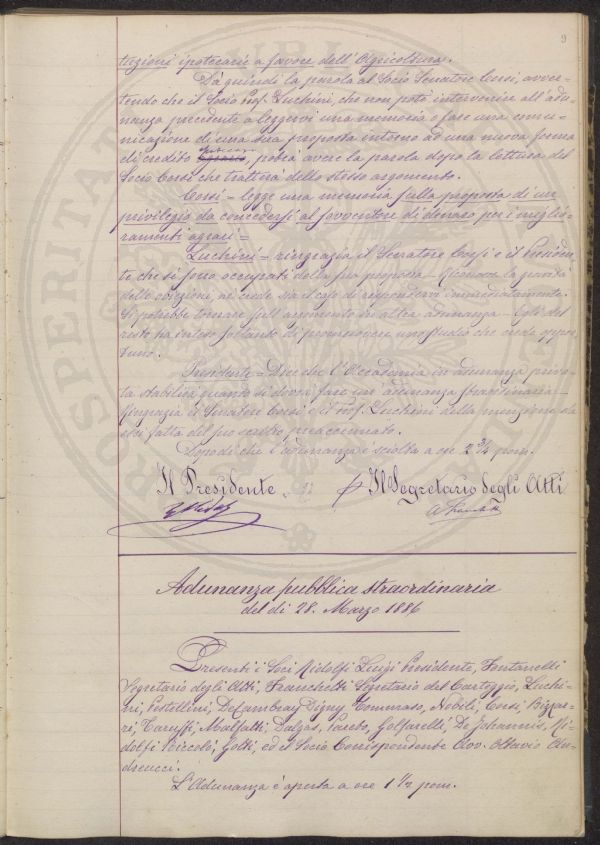 9
tuzioni ipotecarie a favore dell'Agricoltura.
Dà quindi la parola al Socio Senatore Corsi, avver-
tendo che il Socio Prof. Luchini, che non potè intervenire all'adu-
nanza precedente a leggervi una memoria o fare una comu-
nicazione di una sua proposta intorno ad una nuova forma
di credito agrario, potrà avere la parola dopo la lettura del
Socio Corsi che tratterà dello stesso argomento.
Corsi = legge una memoria sulla proposta di un
privilegio da concedersi al sovventore di denaro per i miglio-
ramenti agrari =
Luchini = ringrazia il Senatore Corsi e il Presiden-
te che si sono occupati della sua proposta = Riconosce la gravità
delle obiezioni, nè crede sia il caso di rispondervi immediatamente.
Si potrebbe tornare sull'argomento in altra adunanza = Egli del
resto ha inteso soltanto di promuovere uno studio che crede oppor-
tuno.
Presidente = Dice che l'Accademia in adunanza priva-
ta stabilirà quando si dovrà fare un'adunanza straordinaria =
Ringrazia il Senatore Corsi e il Prof. Luchini della menzione da
essi fatta del suo scritto preaccennato.
Dopodichè l'adunanza è sciolta a ore 2 3/4 pom.
Il Presidente Il Segretario degli Atti
Adunanza pubblica straordinaria
del dì 28. Marzo 1886
Presenti i Soci Ridolfi Luigi Presidente, Fontanelli
Segretario degli Atti, Franchetti Segretario del Carteggio, Luchi-
ni, Pestellini, De Cambray Digny Tommaso, Nobili, Corsi, Bizzar-
ri, Caruffi, Malfatti, Dalgas, Pareto, Golfarelli, De Johannis, Ri-
dolfi Niccolò, Gotti, ed il Socio Corrispondente Avv. Ottavio An-
dreucci.
L'Adunanza è aperta a ore 1 1/2 pom.
PROSPERITATI